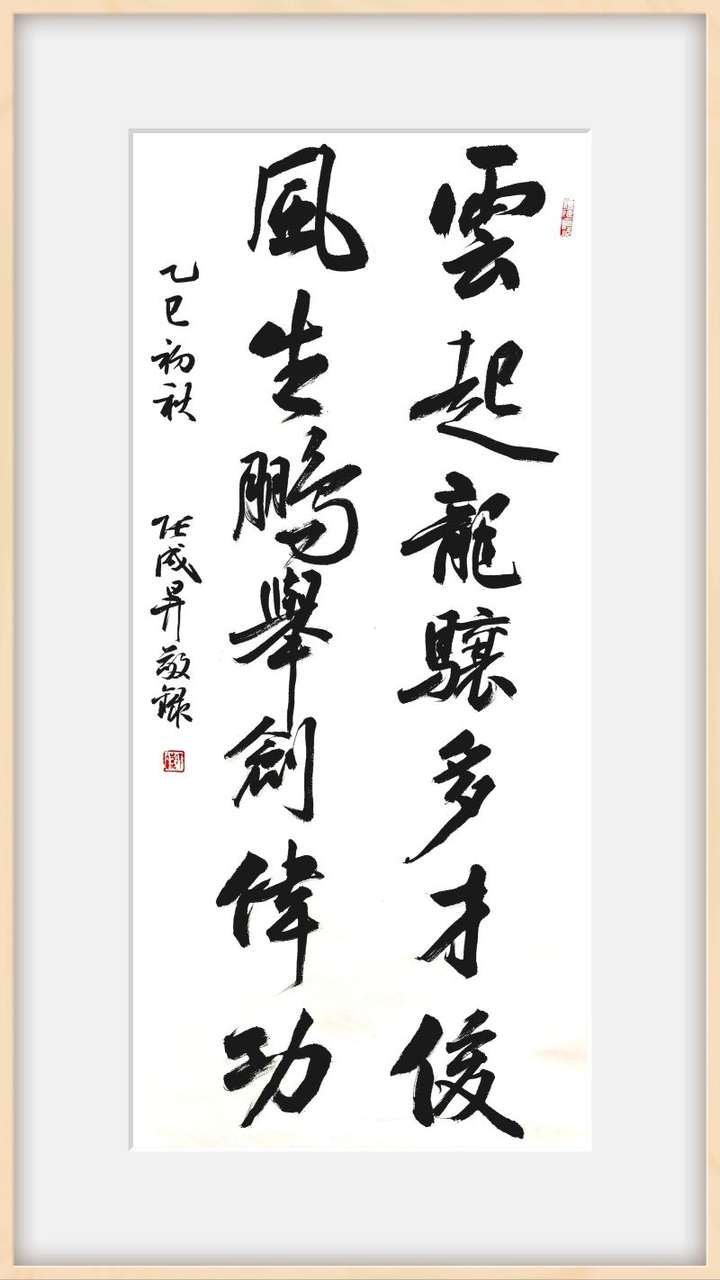 雲起龍驤多才俊
風生鵬舉創偉功
乙巳初秋
任成昇敬錄